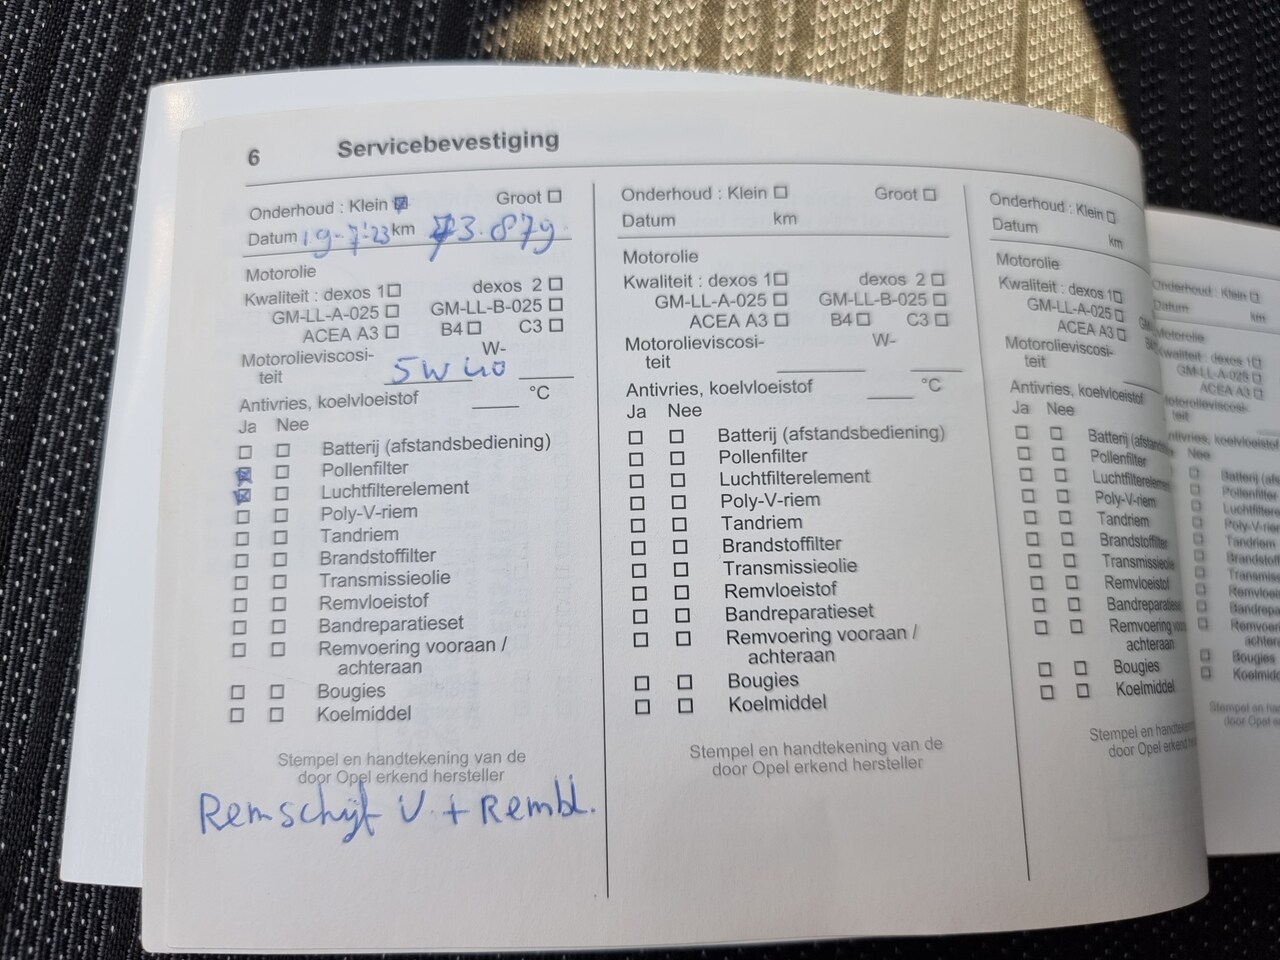 6 Servicebevestiging
Onderhoud : Klein ☒ Groot ☐
Datum 19-7-'23 km 73.879
Motorolie
Kwaliteit : dexos 1☐ dexos 2 ☐
GM-LL-A-025 ☐ GM-LL-B-025 ☐
ACEA A3 ☐ B4 ☐ C3 ☐
Motorolieviscosi- W-
teit 5W40
Antivries, koelvloeistof ____ °C
Ja Nee
☐ ☐ Batterij (afstandsbediening)
☒ ☐ Pollenfilter
☒ ☐ Luchtfilterelement
☐ ☐ Poly-V-riem
☐ ☐ Tandriem
☐ ☐ Brandstoffilter
☐ ☐ Transmissieolie
☐ ☐ Remvloeistof
☐ ☐ Bandreparatieset
☐ ☐ Remvoering vooraan /
achteraan
☐ ☐ Bougies
☐ ☐ Koelmiddel
Stempel en handtekening van de
door Opel erkend hersteller
Remschijf V. + Rembl.
Onderhoud : Klein ☐ Groot ☐
Datum km
Motorolie
Kwaliteit : dexos 1☐ dexos 2 ☐
GM-LL-A-025 ☐ GM-LL-B-025 ☐
ACEA A3 ☐ B4 ☐ C3 ☐
Motorolieviscosi- W-
teit
Antivries, koelvloeistof ____ °C
Ja Nee
☐ ☐ Batterij (afstandsbediening)
☐ ☐ Pollenfilter
☐ ☐ Luchtfilterelement
☐ ☐ Poly-V-riem
☐ ☐ Tandriem
☐ ☐ Brandstoffilter
☐ ☐ Transmissieolie
☐ ☐ Remvloeistof
☐ ☐ Bandreparatieset
☐ ☐ Remvoering vooraan /
achteraan
☐ ☐ Bougies
☐ ☐ Koelmiddel
Stempel en handtekening van de
door Opel erkend hersteller
Onderhoud : Klein ☐
Datum km
Motorolie
Kwaliteit : dexos 1☐
GM-LL-A-025 ☐
ACEA A3 ☐
Motorolieviscosi-
teit
Antivries, koelvloeistof
Ja Nee
☐ ☐ Batterij
☐ ☐ Pollenfilter
☐ ☐ Luchtfilterelement
☐ ☐ Poly-V-riem
☐ ☐ Tandriem
☐ ☐ Brandstoffilter
☐ ☐ Transmissieolie
☐ ☐ Remvloeistof
☐ ☐ Bandreparatieset
☐ ☐ Remvoering
achteraan
☐ ☐ Bougies
☐ ☐ Koelmiddel
Stempel en
door Opel erkend